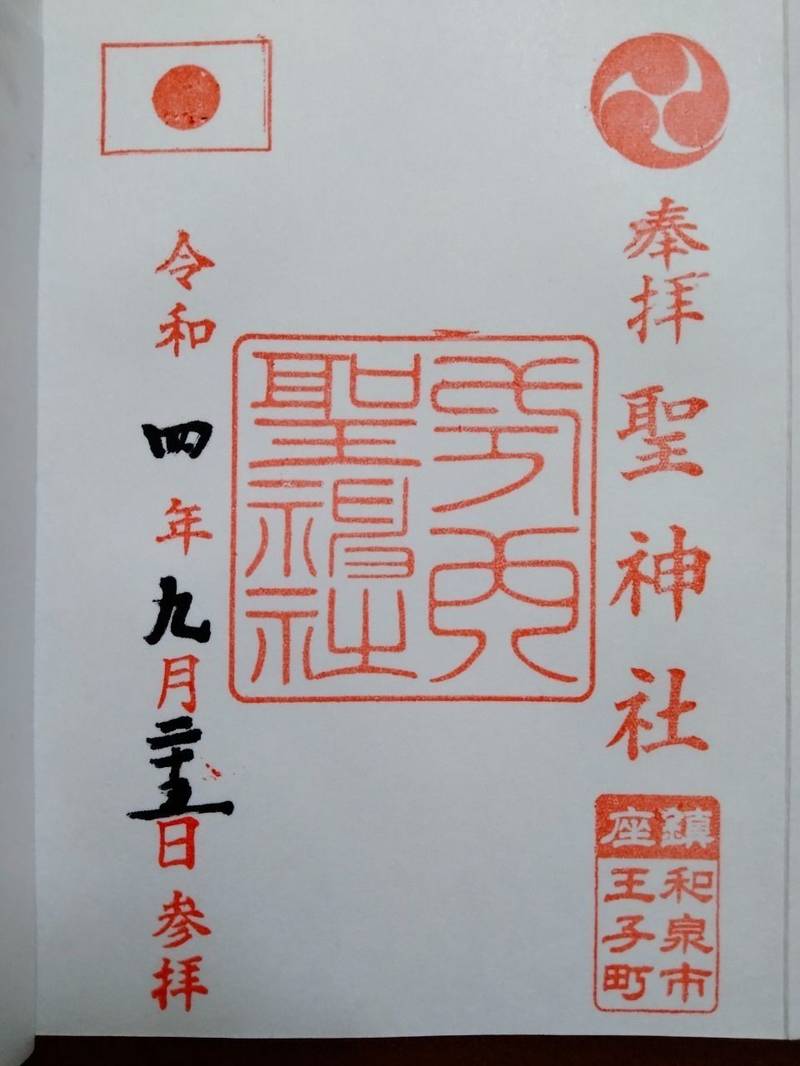 奉拝 聖神社
鎮座
和泉市
王子町
聖神社
令和四年九月二十五日参拝